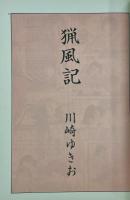 猟風記
川崎ゆきお